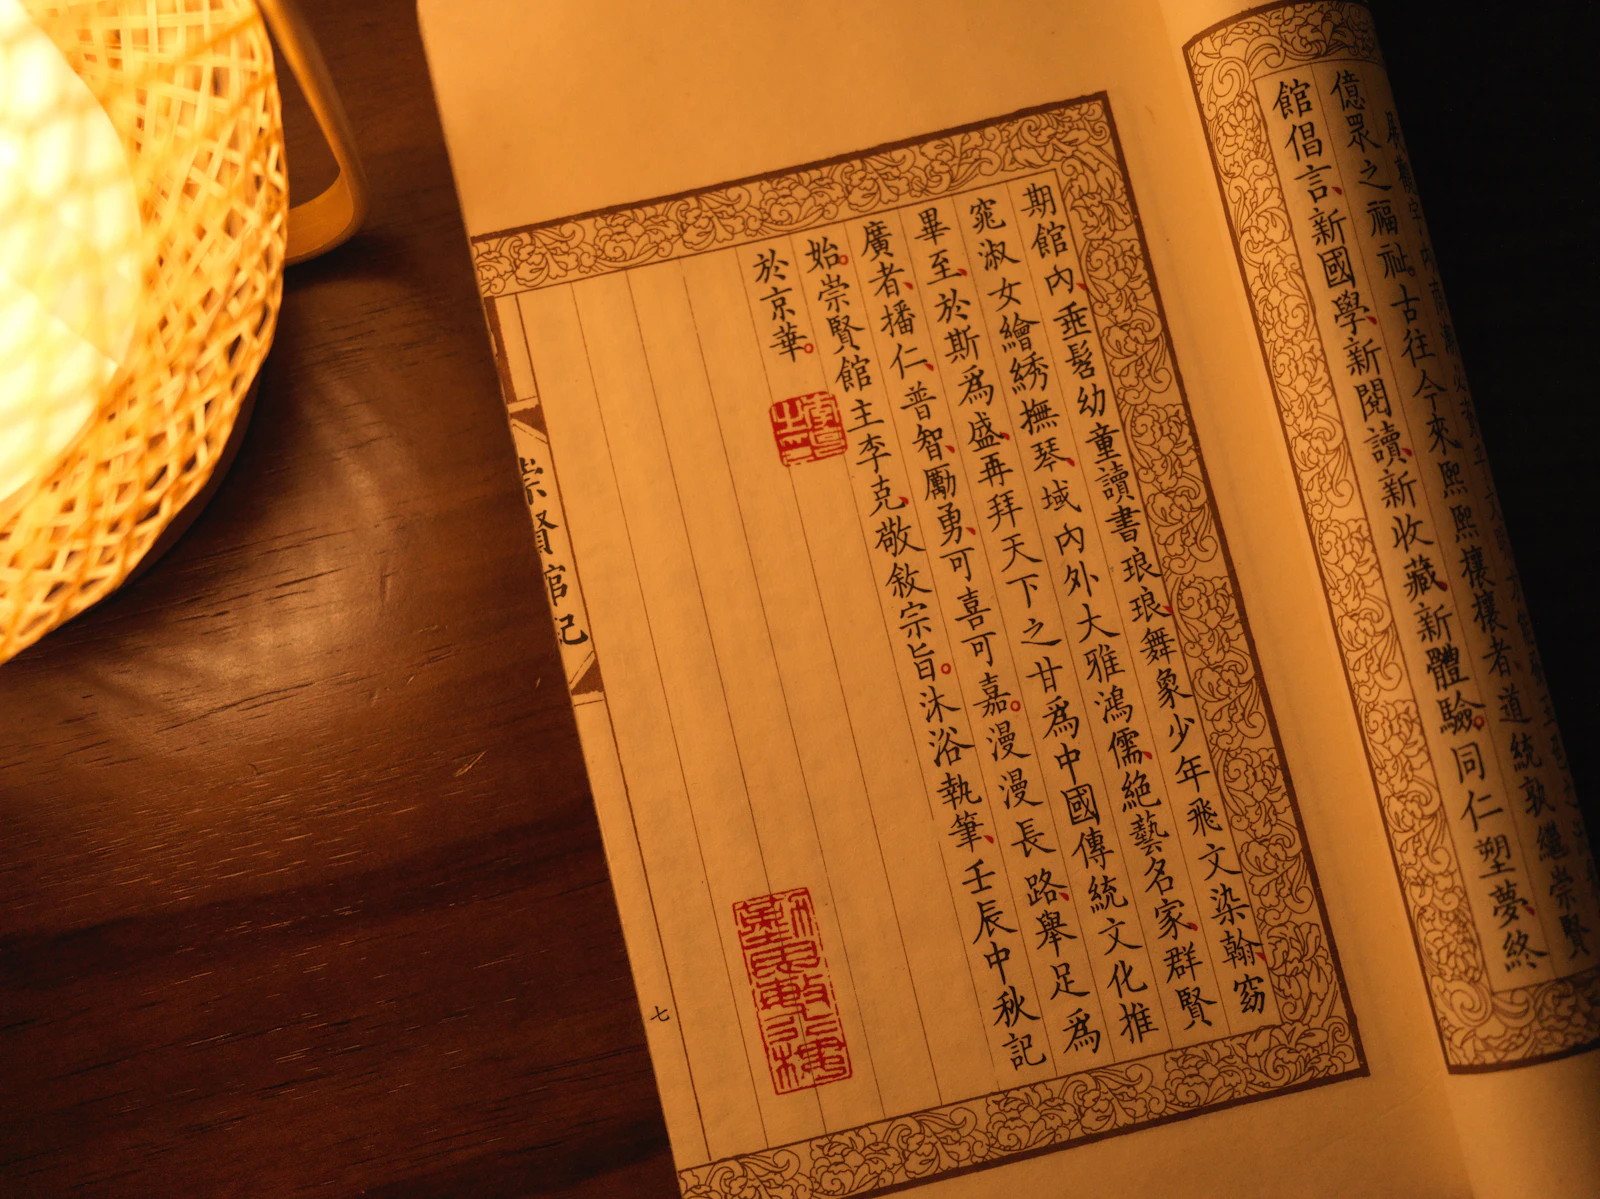 億眾之福祉。古往今來、熙熙攘攘者、道統敦繼崇賢
館倡言、新國學、新閱讀、新收藏、新體驗。同仁塑夢、終
期館內、垂髫幼童讀書琅琅、舞象少年飛文染翰、窈
窕淑女繪綉撫琴、域內外大雅鴻儒、絕藝名家、群賢
畢至、於斯爲盛、再拜天下之甘爲中國傳統文化推
廣者、播仁、普智、勵勇、可喜可嘉。漫漫長路、舉足爲
始。崇賢館主李克、敬敘宗旨。沐浴執筆、壬辰中秋記
於京華。
崇賢館記
七